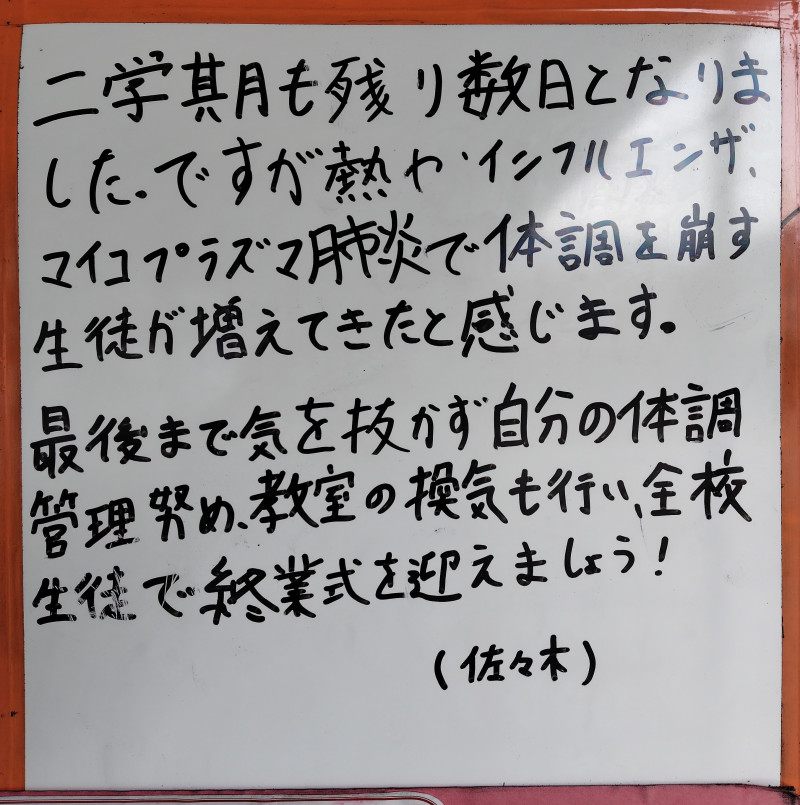 二学期も残り数日となりま
した。ですが熱や、インフルエンザ、
マイコプラズマ肺炎で体調を崩す
生徒が増えてきたと感じます。
最後まで気を抜かず自分の体調
管理努め、教室の換気も行い、全校
生徒で終業式を迎えましょう!
(佐々木)